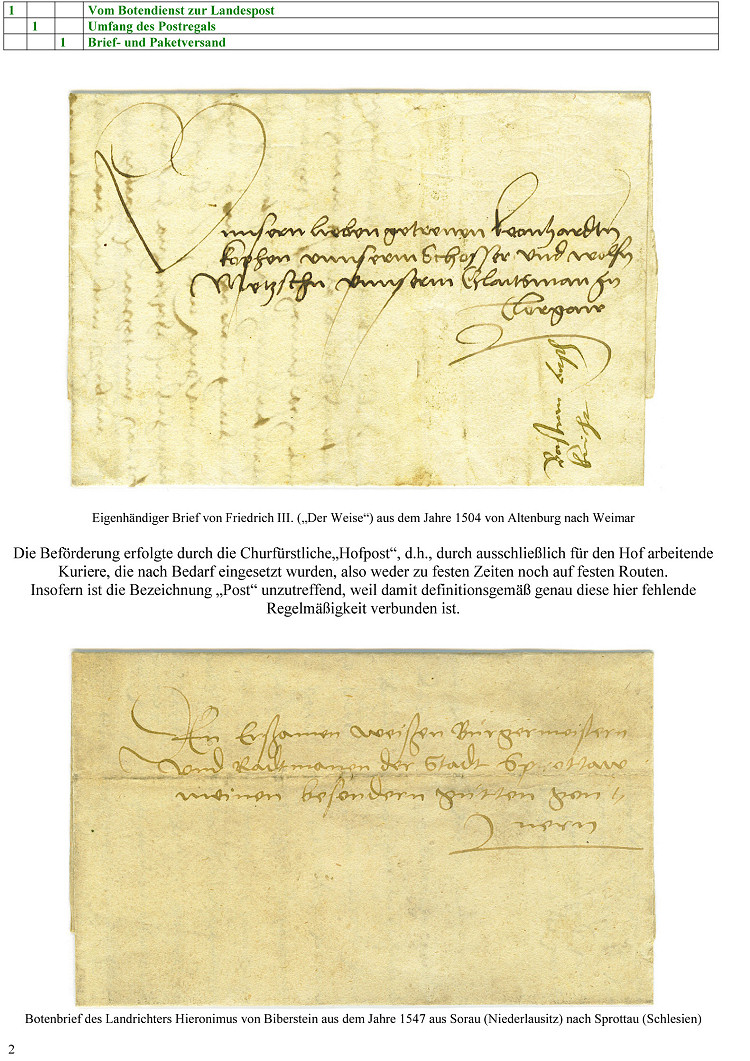 1 Vom Botendienst zur Landespost
1 Umfang des Postregals
1 Brief- und Paketversand
unnsern lieben getrenen
kophen unnserm Schosser und wolfn
Metzschn unnserm Glaitsman zu
Torgaw
Eigenhändiger Brief von Friedrich III. („Der Weise“) aus dem Jahre 1504 von Altenburg nach Weimar
Die Beförderung erfolgte durch die Churfürstliche„Hofpost“, d.h., durch ausschließlich für den Hof arbeitende
Kuriere, die nach Bedarf eingesetzt wurden, also weder zu festen Zeiten noch auf festen Routen.
Insofern ist die Bezeichnung „Post“ unzutreffend, weil damit definitionsgemäß genau diese hier fehlende
Regelmäßigkeit verbunden ist.
Den Erßamen weißen Bürgermeistern
Vnd Radtmanen der Stadt Sprottaw
meinen besondern gutten gon
nern
Botenbrief des Landrichters Hieronimus von Biberstein aus dem Jahre 1547 aus Sorau (Niederlausitz) nach Sprottau (Schlesien)
2